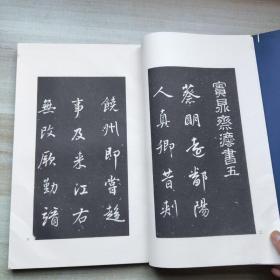 寶晉齋灋書五
蔡明遠鄱陽
人真卿昔刺
饒州即嘗趨
事及來江右
無改厥勤靖